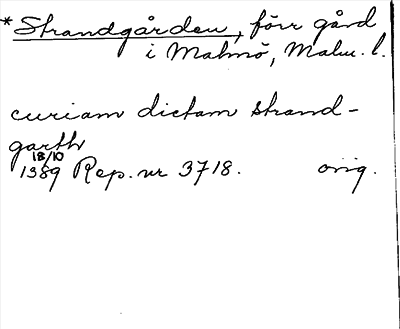 *Strandgården, förr gård
i Malmö, Malm. l.
curiam dictam strand-
garth
18/10
1389 Rep. nr 3718. orig.